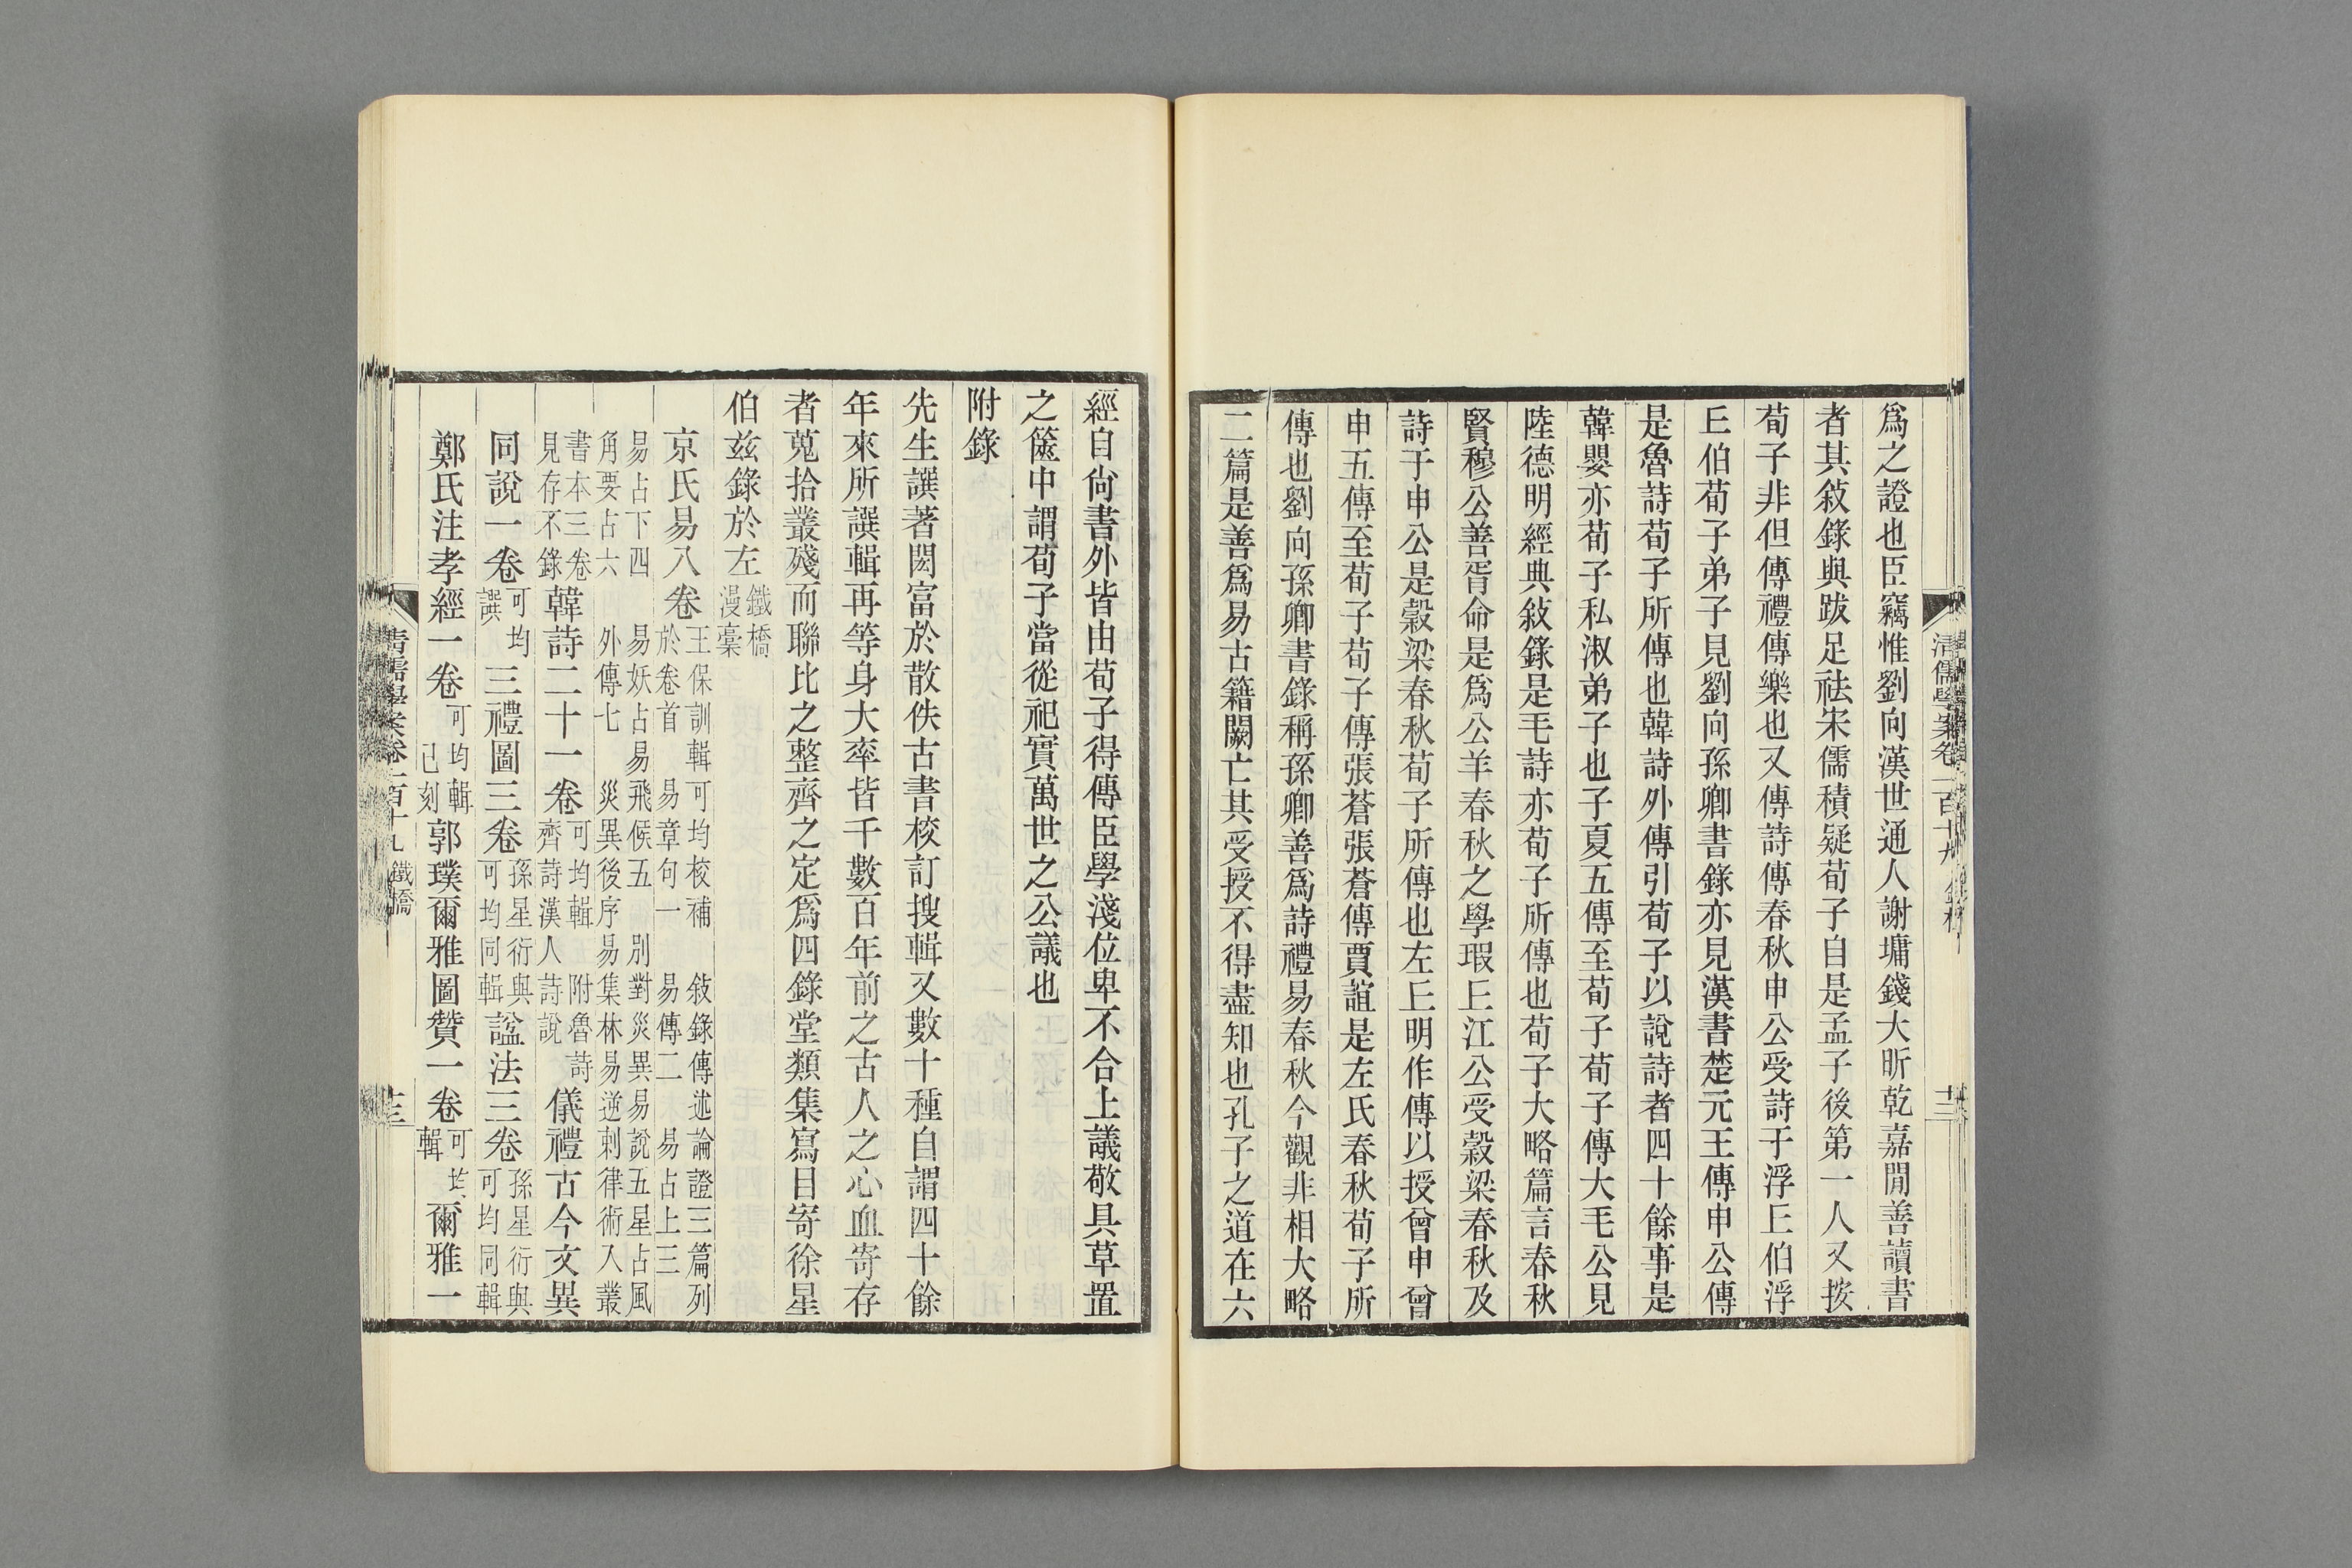 爲之證也臣竊惟劉向漢世通人謝墉錢大昕乾嘉閒善讀書
者其敍錄與跋足祛宋儒積疑荀子自是孟子後第一人又按
荀子非但傳禮傳樂也又傳詩傳春秋申公受詩于浮丘伯浮
丘伯荀子弟子見劉向孫卿書錄亦見漢書楚元王傳申公傳
是魯詩荀子所傳也韓詩外傳引荀子以說詩者四十餘事是
韓嬰亦荀子私淑弟子也子夏五傳至荀子荀子傳大毛公見
陸德明經典敍錄是毛詩亦荀子所傳也荀子大略篇言春秋
賢穆公善胥命是爲公羊春秋之學瑕丘江公受穀梁春秋及
詩于申公是穀梁春秋荀子所傳也左丘明作傳以授曾申曾
申五傳至荀子荀子傳張蒼張蒼傳賈誼是左氏春秋荀子所
傳也劉向孫卿書錄稱孫卿善爲詩禮易春秋今觀非相大略
二篇是善爲易古籍闕亡其受授不得盡知也孔子之道在六
經自尙書外皆由荀子得傳臣學淺位卑不合上議敬具草置
之篋中謂荀子當從祀實萬世之公議也
附錄
先生譔著閎富於散佚古書校訂搜輯又數十種自謂四十餘
年來所譔輯再等身大率皆千數百年前之古人之心血寄存
者蒐拾叢殘而聯比之整齊之定爲四錄堂類集寫目寄徐星
伯兹錄於左鐵橋漫稾
京氏易八卷王保訓輯可均校補 敍錄傳述論證三篇列於卷首 易章句一 易傳二 易占上三
易占下四 易妖占易飛候五 別對災異易說五星占風角要占六 外傳七 災異後序易集林易逆刺律術入叢
書本三卷見存不錄韓詩二十一卷可均輯 附魯詩齊詩漢人詩說儀禮古今文異
同說一卷可均譔三禮圖三卷孫星衍與可均同輯諡法三卷孫星衍與可均同輯
鄭氏注孝經一卷可均輯已刻郭璞爾雅圖贊一卷可均輯爾雅一
清儒學案卷一百十九
鐵橋
十三